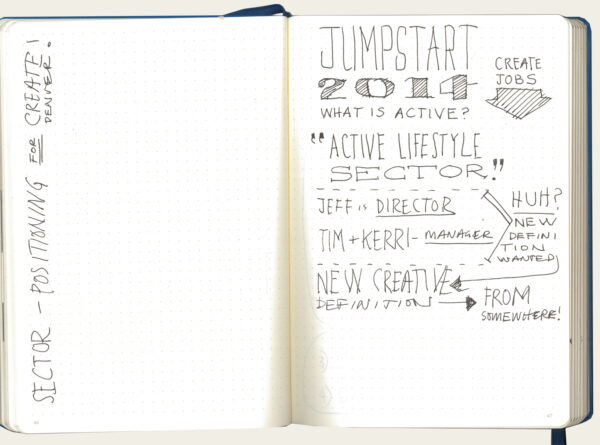 SECTOR - POSITIONING FOR CREATE!
DENVER.
JUMPSTART
2014
WHAT IS ACTIVE?
CREATE
JOBS
"ACTIVE LIFESTYLE
SECTOR."
JEFF is DIRECTOR
TIM + KERRI- MANAGER
HUH?
NEW
DEFINI
TION
WANTED
NEW CREATIVE
DEFINITION
FROM
SOMEWHERE!